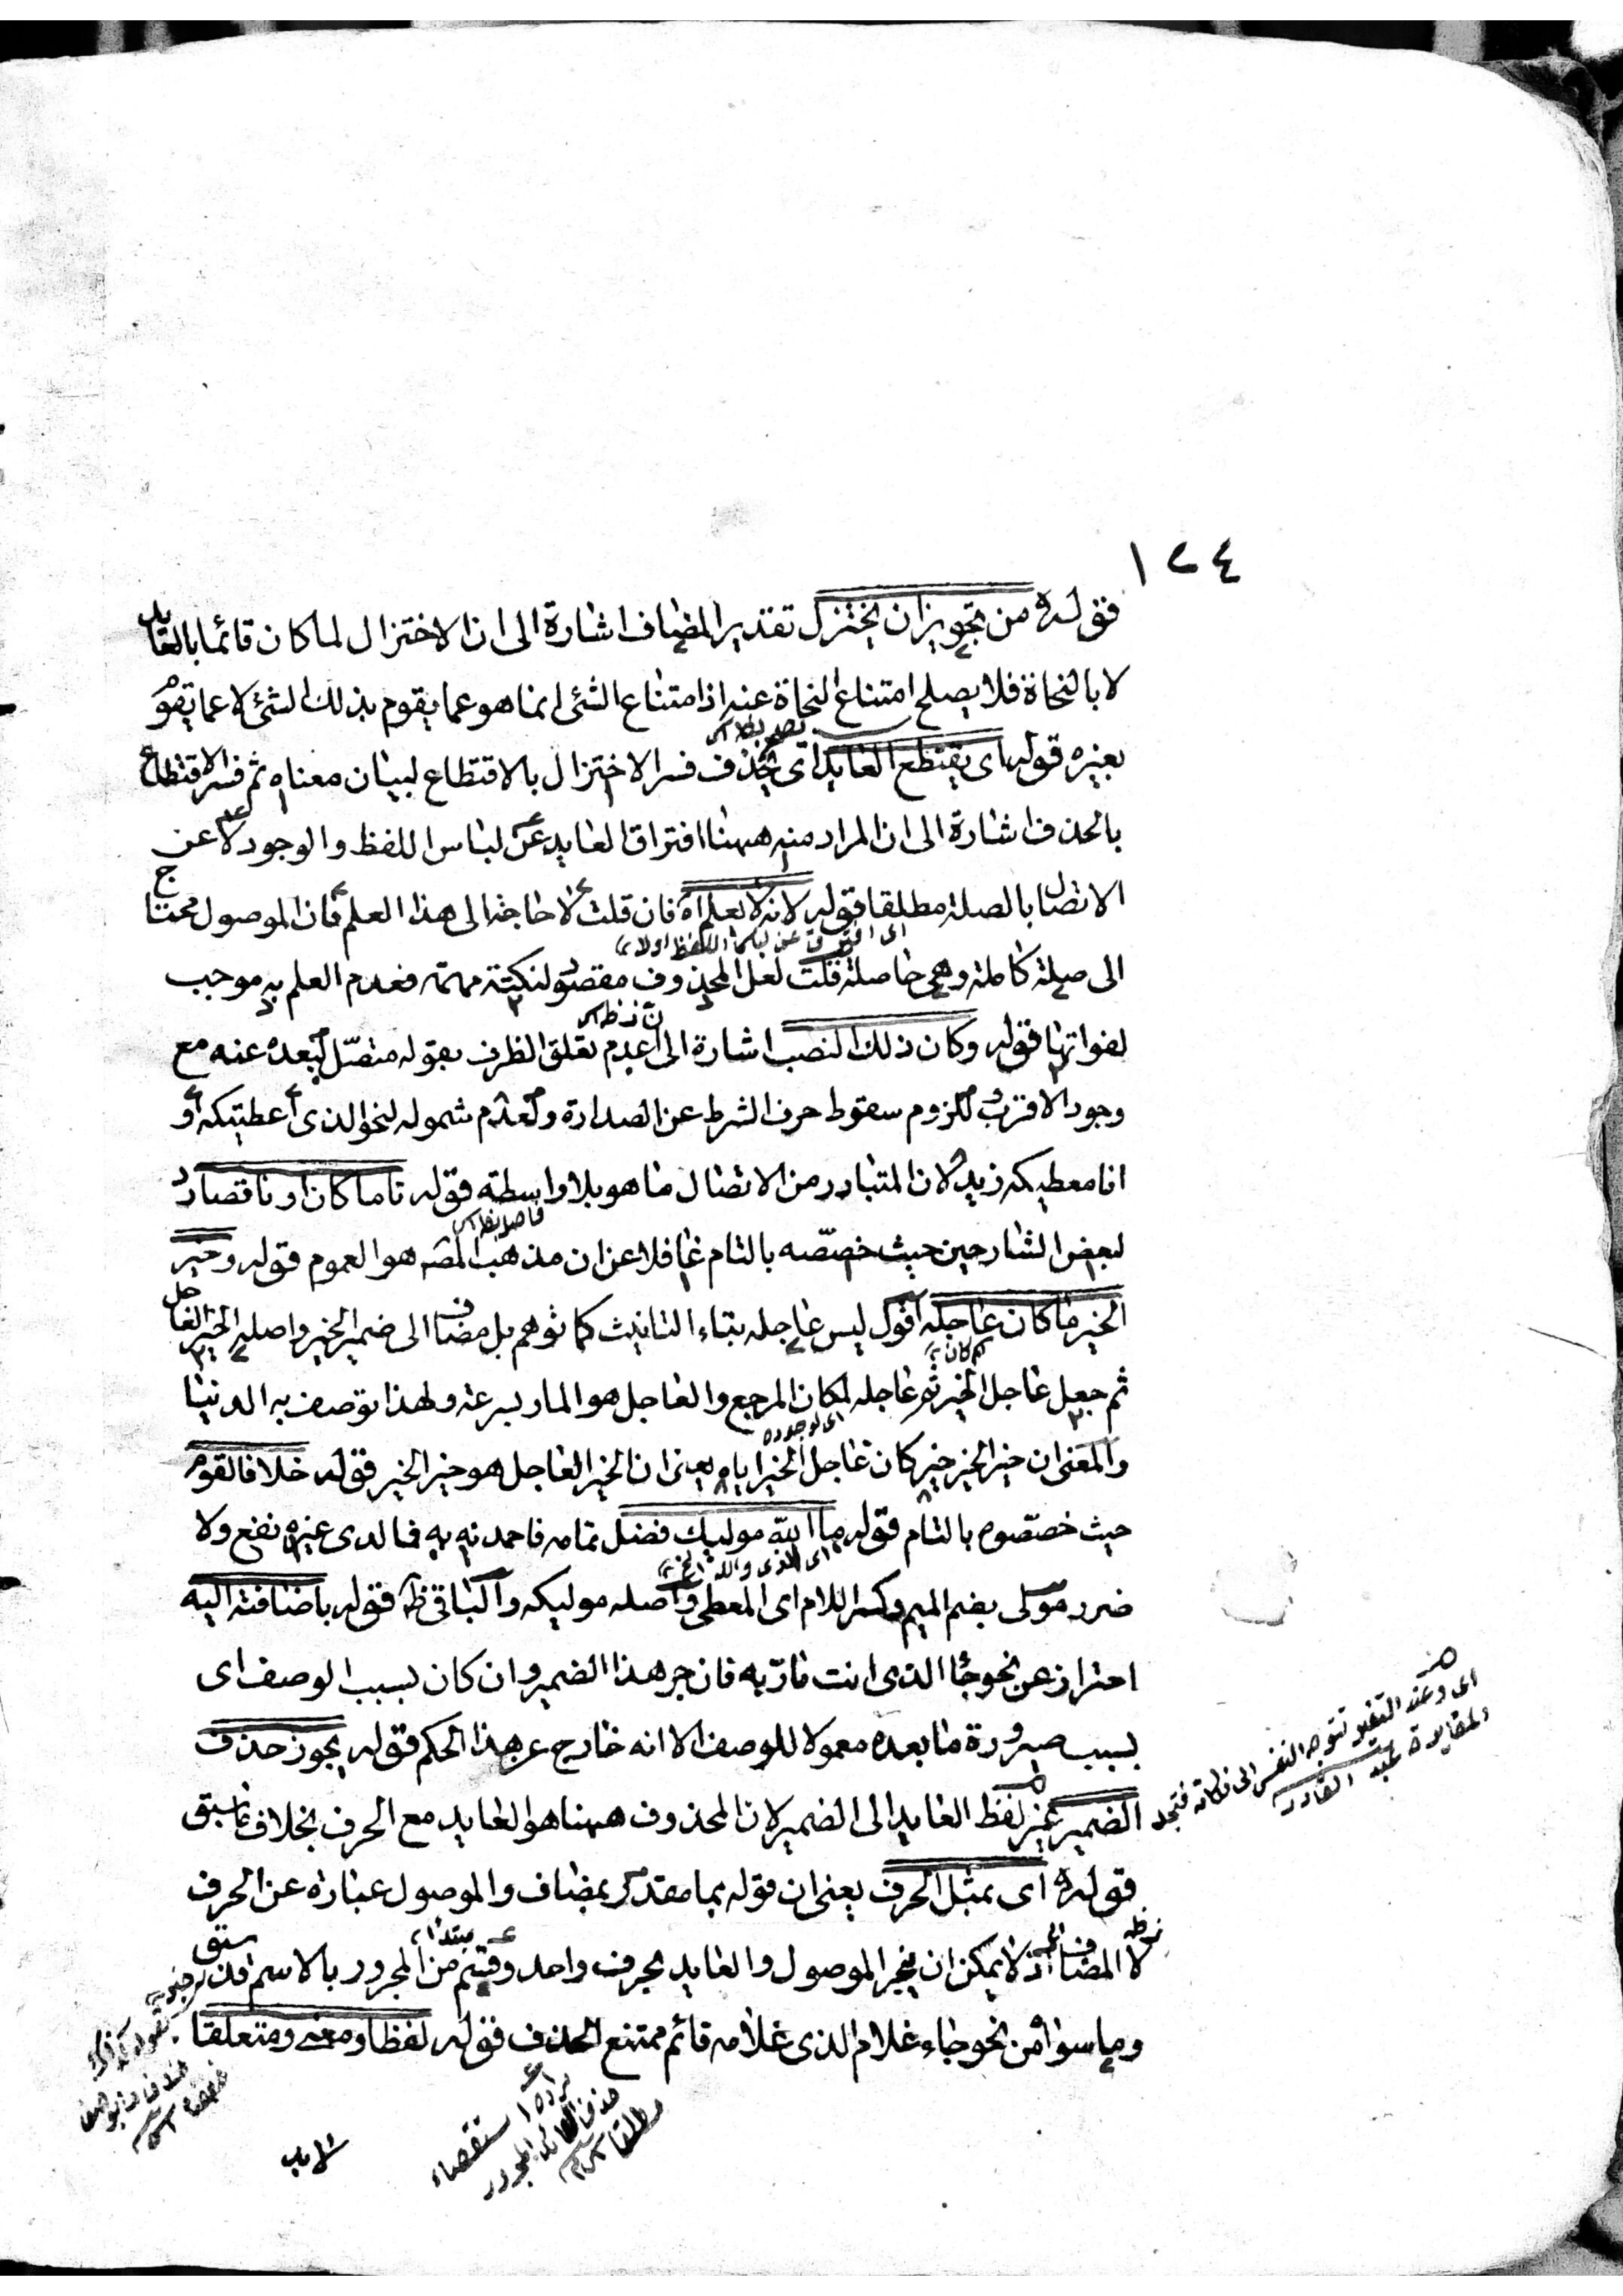 ١٢٤
قوله من تجويزان يختزل تقدير المضاف اشارة الى ان الاختزال لما كان قائما بالعايد
لا بالنحاة فلا يصلح امتناع النحاة عنه اذ امتناع الشئ انما هو عما يقوم بذلك الشئ لا عما يقوم
بغيره قوله اى يقتطع العايد اى يحذف فسر الاختزال بالاقتطاع لبيان معناه ثم فسر الاقتطاع
بالحذف اشارة الى ان المراد منه ههنا افتراق العايد عن لباس اللفظ والوجود لا عن
الاتصال بالصلة مطلقا قوله لانه لا يعلم اه فان قلت لا حاجة الى هذا العلم فان الموصول محتاج
اى افترق عن لباس اللفظ اولا
الى صلة كاملة وهى حاصلة قلت لعل المحذوف مقصود لنكتة مهمة فعدم العلم به موجب
لفواتها قوله وكان ذلك النصب اشارة الى عدم تعلق الظرف بقوله متصل لبعده عنه مع
وجود الاقرب وللزوم سقوط حرف الشرط عن الصدارة ولعدم شموله لنحو الذى اعطيتكه او
انا معطيكه زيد لان المتبادر من الاتصال ما هو بلا واسطة قوله تاما كان او ناقصا رد
لبعض الشارحين حيث خصصه بالتام غافلا عن ان مذهب المصه هو العموم قوله وخير
الخير ما كان عاجله اقول ليس عاجله بتاء التانيث كما توهم بل مضاف الى ضمير الخير واصله الخير العاجل
ثم جعل عاجل الخير ثم عاجله لمكان المرجع والعاجل هو المار بسرعة ولهذا توصف به الدنيا
اى لوجوده
والمعنى ان خير الخير خير كان عاجل الخير اياه يعنى ان الخير العاجل هو خير الخير قوله خلافا لقوم
حيث خصصوه بالتام قوله ما الله موليك فضل تمامه فاحمدنه به فما لدى غيره نفع ولا
اى الذى والله الخ
ضرر مولى بضم الميم وكسر اللام اى المعطى واصله موليكه والباقى ظ قوله باضافته اليه
احتراز عن نحو جاء الذى انت مار به فان جر هذا الضمير وان كان بسبب الوصف اى
بسبب صيرورة ما بعده معمولا للوصف الا انه خارج عن هذا الحكم قوله يجوز حذف
الضمير غير لفظ العايد الى الضمير لان المحذوف ههنا هو العايد مع الحرف بخلاف ما سبق
قوله اى بمثل الحرف يعنى ان قوله بما مقدر بمضاف والموصول عبارة عن الحرف
لا المضاف اذ لا يمكن ان ينجر الموصول والعايد بحرف واحد وقسم من المجرور بالاسم قد سبق
وما سواه من نحو جاء غلام الذى غلامه قائم ممتنع الحذف قوله لفظا ومعنى ومتعلقا
اى وعند التغير تتوجه النفس الى نكاته فتجد
عبد القادر
حذف العائد المجرور
مطلقا
لا بد